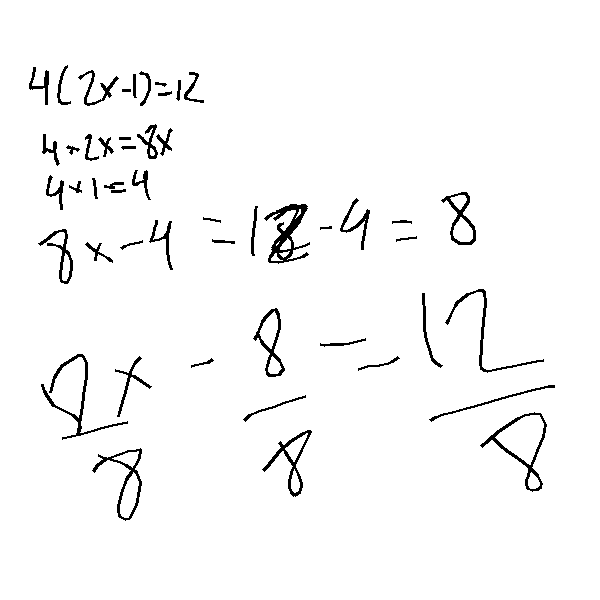 4(2x-1)=12
4×2x=8x
4×1=4
8x-4=12-4=8
8x/8 - 8/8 = 12/8